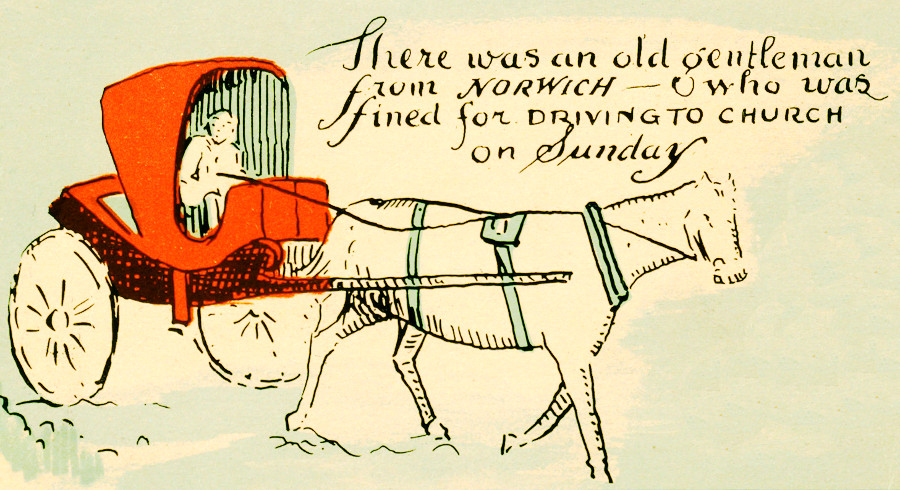 There was an old gentleman
from NORWICH — who was
fined for DRIVING TO CHURCH
on Sunday